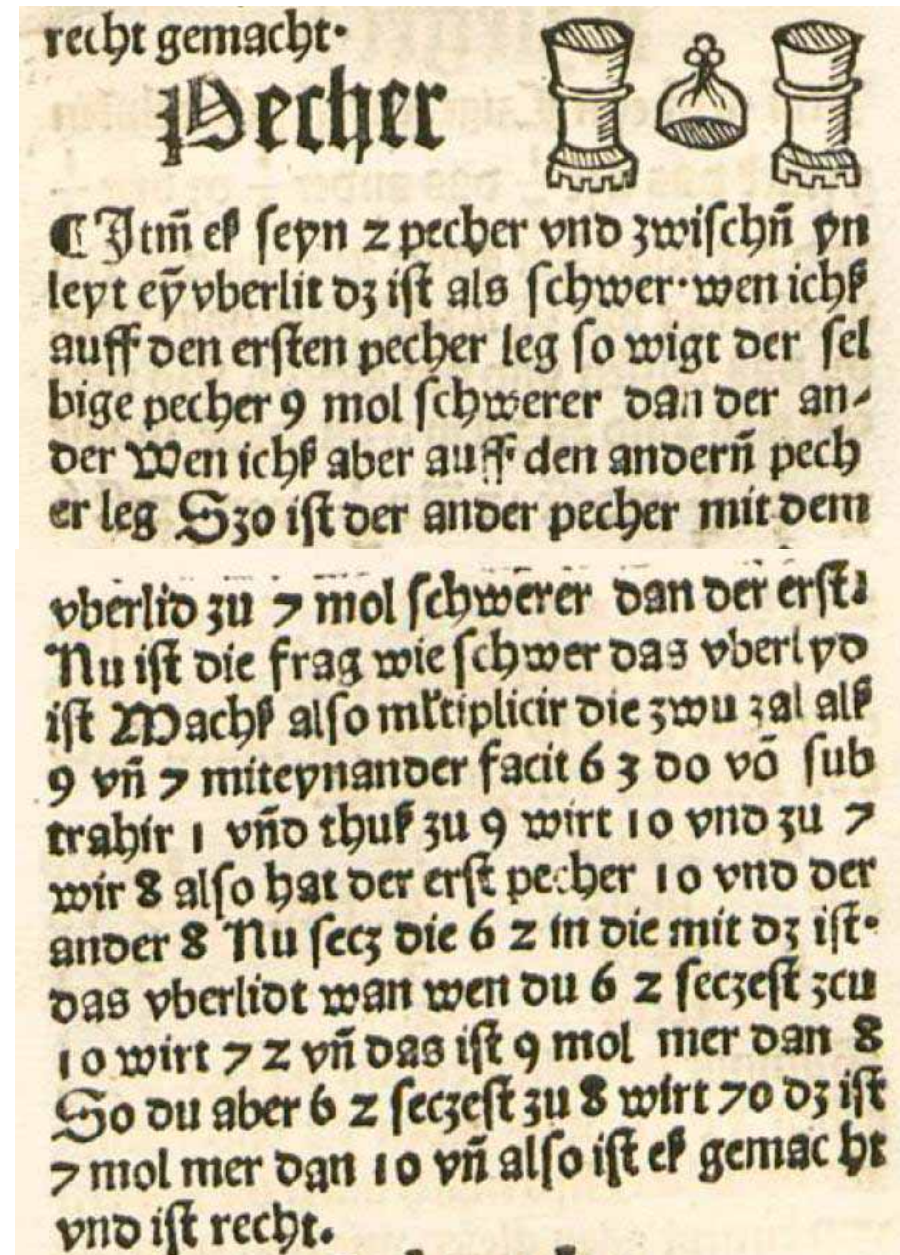 recht gemacht·
Pecher
¶ Jtm̄ eß seyn 2 pecher vnd zwischn̄ yn
leyt eȳ vberlit dz ist als schwer·wen ichß
auff den ersten pecher leg so wigt der sel
bige pecher 9 mol schwerer dan der an⸗
der Wen ichß aber auff den andern̄ pech
er leg Szo ist der ander pecher mit dem
vberlid zu 7 mol schwerer dan der erst.
Nu ist die frag wie schwer das vberlyd
ist Machß also ml̄tiplicir die zwu zal alß
9 vn̄ 7 miteynander facit 63 do vō sub
trahir 1 vn̄d thuß zu 9 wirt 10 vnd zu 7
wir 8 also hat der erst pecher 10 vnd der
ander 8 Nu secz die 62 in die mit dz ist·
das vberlidt wan wen du 62 seczest zcu
10 wirt 72 vn̄ das ist 9 mol mer dan 8
So du aber 62 seczest zu 8 wirt 70 dz ist
7 mol mer dan 10 vn̄ also ist eß gemacht
vnd ist recht.